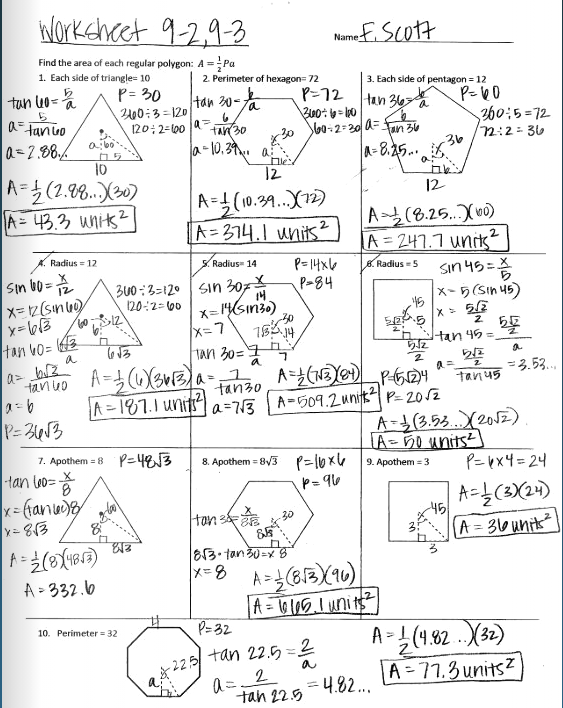 Worksheet 9-2, 9-3
Name F. Scott
Find the area of each regular polygon: A = 1/2 Pa
1. Each side of triangle= 10
P= 30
tan 60 = 5/a
360÷3=120
120÷2=60
a= 5/tan60
a=2.88..
a
60
5
10
A=1/2(2.88...)(30)
A= 43.3 units²
2. Perimeter of hexagon= 72
P=72
tan 30= 6/a
360÷6=60
60÷2=30
a= 6/tan30
a=10.39...
30
a
6
12
A=1/2(10.39...)(72)
A= 374.1 units²
3. Each side of pentagon = 12
P= 60
tan 36= 6/a
360÷5=72
72÷2= 36
a= 6/tan 36
a=8.25...
36
a
6
12
A=1/2(8.25...)(60)
A= 247.7 units²
4. Radius = 12
sin 60= x/12
360÷3=120
120÷2=60
x=12(sin60)
x=6√3
60
6
12
6√3
tan 60= 6√3/a
a= 6√3/tan60
a=6
P=36√3
A=1/2(6)(36√3)
A=187.1 units²
5. Radius= 14
P=14x6
P=84
sin 30= x/14
x=14(sin30)
x=7
30
7√3
14
7
tan 30= 7/a
a= 7/tan30
a=7√3
A=1/2(7√3)(84)
A=509.2 units²
6. Radius = 5
sin 45= x/5
x= 5(sin45)
x= 5√2/2
45
5√2/2
5
5√2/2
tan 45= 5√2/2/a
a= 5√2/2/tan45 =3.53...
P=(5√2)4
P= 20√2
A=1/2(3.53...)(20√2)
A= 50 units²
7. Apothem = 8
P=48√3
tan 60= x/8
x=(tan60)8
x=8√3
60
8
8√3
A=1/2(8)(48√3)
A= 332.6
8. Apothem = 8√3
P=16x6
P= 96
tan 30= x/8√3
30
8√3
8
8√3•tan30=x
x=8
A=1/2(8√3)(96)
A=665.1 units²
9. Apothem = 3
P=6x4=24
A=1/2(3)(24)
45
3
3
A= 36 units²
10. Perimeter = 32
4
P=32
22.5
a
tan 22.5= 2/a
a= 2/tan 22.5 =4.82...
A=1/2(4.82...)(32)
A= 77.3 units²